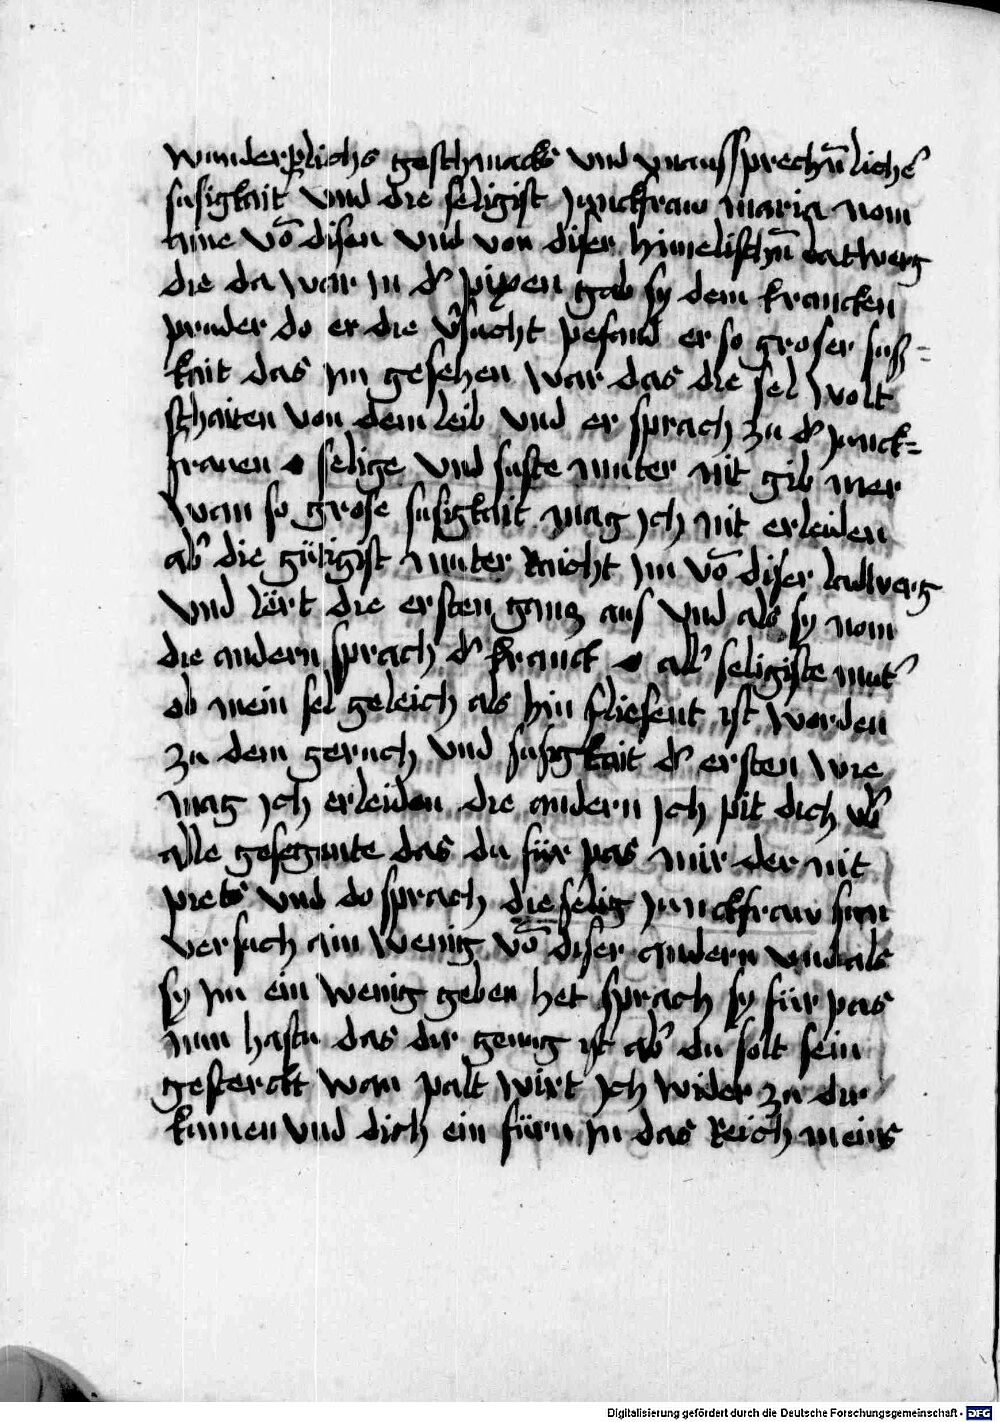 wunderperlichs geschmacks vnd vnaussprechn̄licher̉
susigkait vnd die seligist junckfraw maria nom
aine vō disen vnd von diser himelischn̄ latwerg
die da war in d̉ pixen gab sy dem krancken
pruder do er die v̉sucht pefand er so groser suß=
kait das im gesehen war das die sel wolt
schaiten von dem leib vnd er sprach zu d̉ junck=
frauen o selige vnd suste muter nit gib mer
wan so grose susigkait mag ich nit erleiden
ab̉ die gütigist muter Raicht im vō diser ladwerg
vnd lërt die ersten gancz aus vnd als sy nom
die andern sprach d̉ kranck o all̉ seligiste mut̉
ob mein sel geleich als hin fliesent ist worden
zu dem geruch vnd susigkait d̉ ersten wie
mag ich erleiden die andern ich pit dich vb̉
alle gesegnnte das du für pas mir der nit
piets vnd do sprach die selig junckfraw sun
versuch ain wenig vō diser andern vnd als
sy im ein wenig geben het sprach sy für pas
nun hastu das dir genug ist ab̉ du solt sein
gesterckt wan palt wirt ich wider zu dir
kumen vnd dich ein fürn in das Reich meins
Digitalisierung gefördert durch die Deutsche Forschungsgemeinschaft - DFG